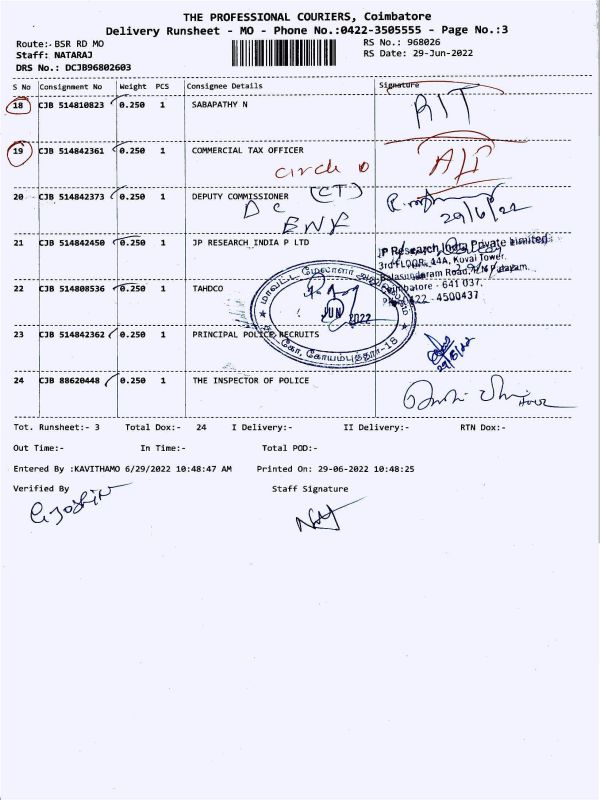 THE PROFESSIONAL COURIERS, Coimbatore
Delivery Runsheet - MO - Phone No.:0422-3505555 - Page No.:3
Route:- BSR RD MO
RS No.: 968026
Staff: NATARAJ
RS Date: 29-Jun-2022
DRS No.: DCJB96802603
S No Consignment No Weight PCS Consignee Details Signature
18 CJB 514810823 0.250 1 SABAPATHY N RIT
19 CJB 514842361 0.250 1 COMMERCIAL TAX OFFICER
circle
20 CJB 514842373 0.250 1 DEPUTY COMMISSIONER (CT)
DC
29/6/22
21 CJB 514842450 0.250 1 JP RESEARCH INDIA P LTD
JP Research India Private Limited
3rd FLOOR, 44A, Kovai Tower,
Balasundaram Road,
Coimbatore - 641 037.
22 CJB 514808536 0.250 1 TAHDCO
4500437
JUN 2022
மாவட்ட மேலாளர்
23 CJB 514842362 0.250 1 PRINCIPAL POLICE RECRUITS
கோயம்புத்தூர்-18
29/6/22
24 CJB 88620448 0.250 1 THE INSPECTOR OF POLICE
Tot. Runsheet:- 3 Total Dox:- 24 I Delivery:- II Delivery:- RTN Dox:-
Out Time:- In Time:- Total POD:-
Entered By :KAVITHAMO 6/29/2022 10:48:47 AM Printed On: 29-06-2022 10:48:25
Verified By Staff Signature